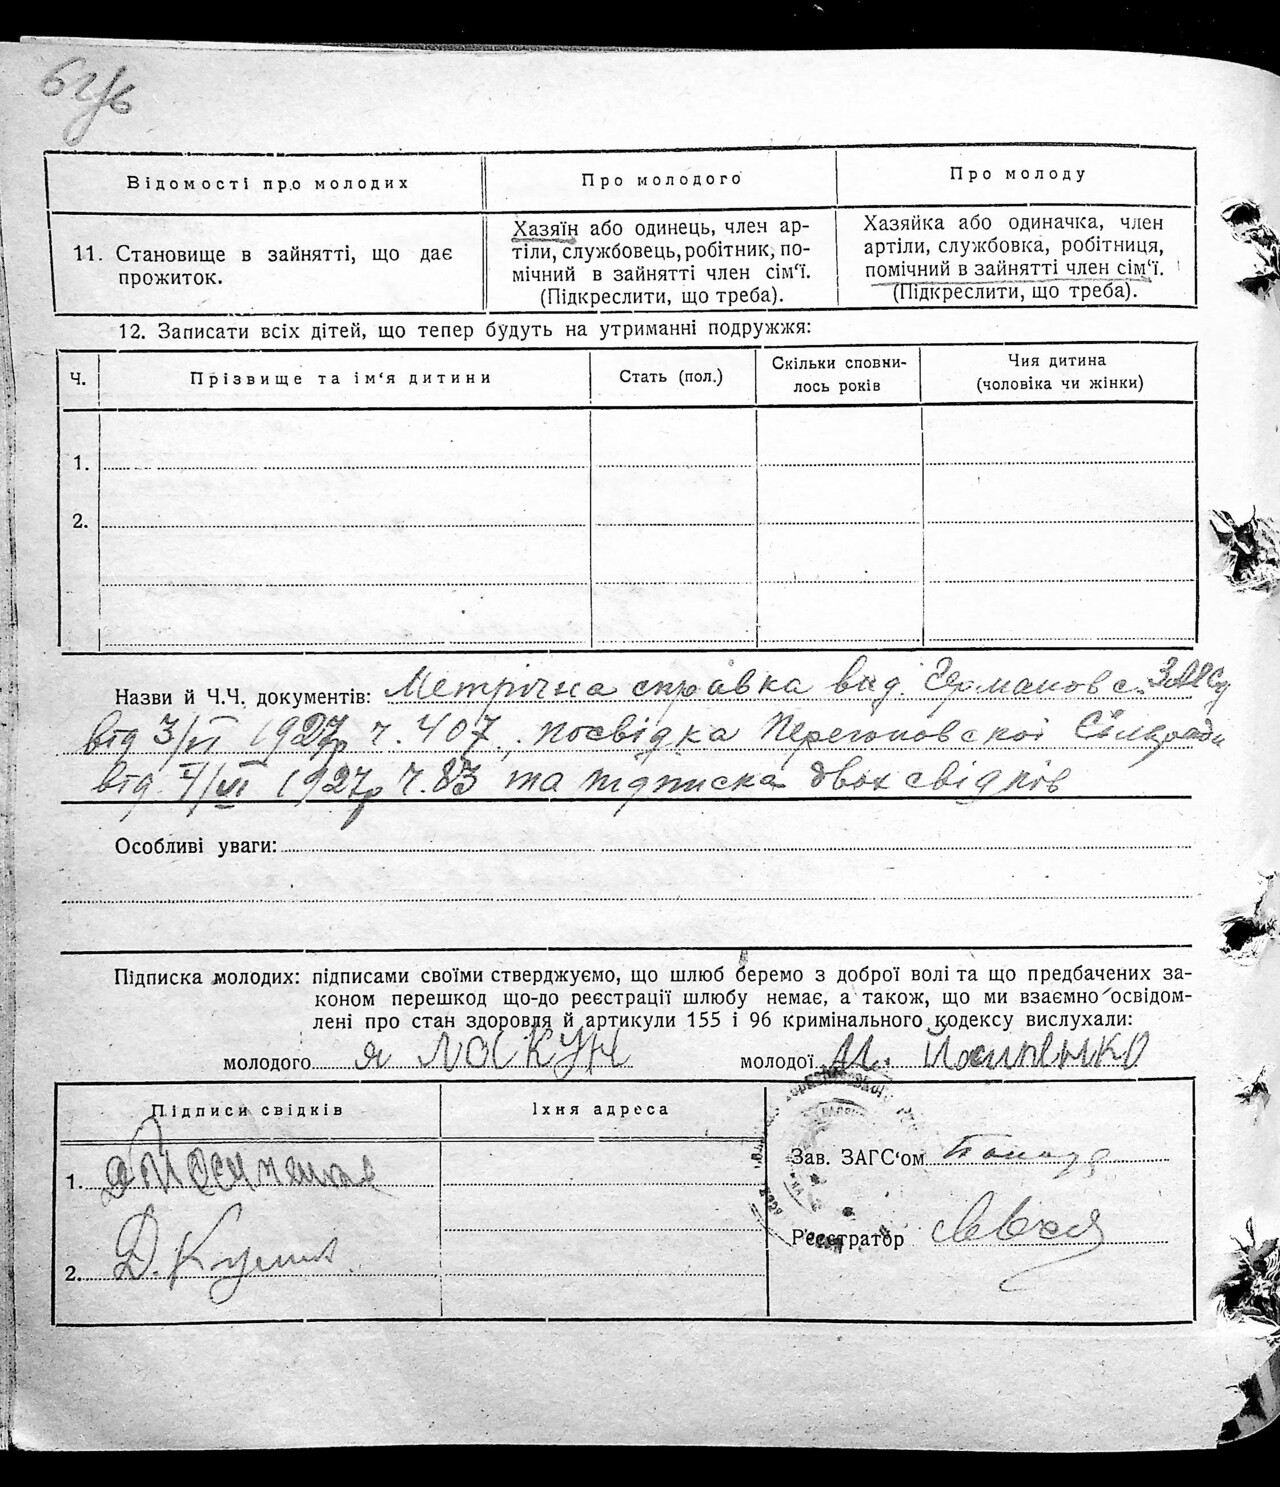 Відомості про молодих
Про молодого
Про молоду
11. Становище в зайнятті, що дає
прожиток.
Хазяїн або одинець, член ар-
тіли, службовець, робітник, по-
мічний в зайнятті член сім‘ї.
(Підкреслити, що треба).
Хазяйка або одиначка, член
артіли, службовка, робітниця,
помічний в зайнятті член сім‘ї.
(Підкреслити, що треба).
12. Записати всіх дітей, що тепер будуть на утриманні подружжя:
Ч.
Прізвище та ім‘я дитини
Стать (пол.)
Скільки сповни-
лось років
Чия дитина
(чоловіка чи жінки)
1.
2.
Назви й Ч.Ч. документів: Метрічна справка вид. Германовс. ЗАГСу
від 3/VI 1927р ч. 407, посвідка Перегоновскої Сільради
від /VI 1927р ч. 83 та підписка двох свідків
Особливі уваги:
Підписка молодих: підписами своїми стверджуємо, що шлюб беремо з доброї волі та що предбачених за-
коном перешкод що-до реєстрації шлюбу немає, а також, що ми взаємно освідом-
лені про стан здоровля й артикули 155 і 96 кримінального кодексу вислухали:
молодого я ЛОСКУН
молодої М. Йосипенко
Підписи свідків
Їхня адреса
1.
2. Д.
Зав. ЗАГС‘ом
Реєстратор